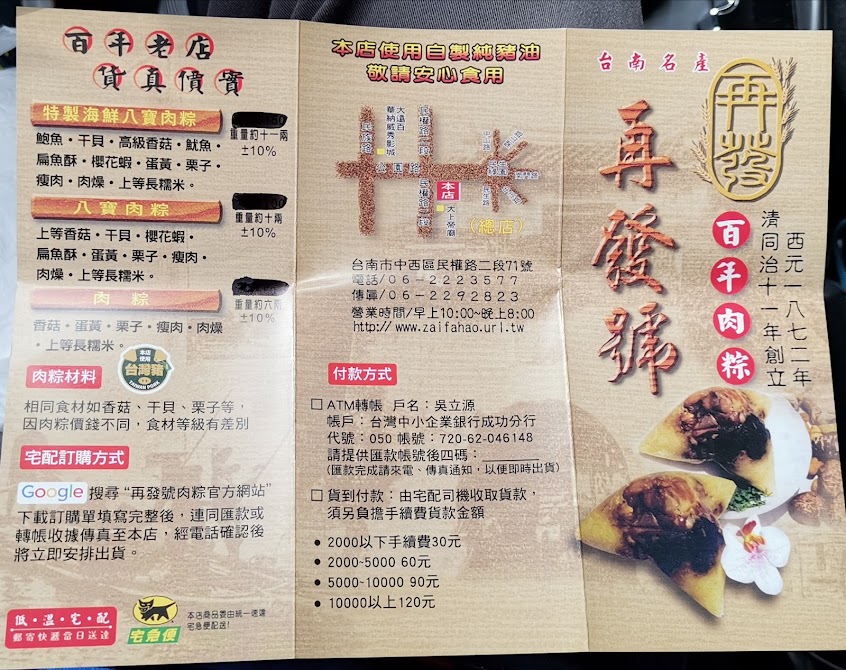 百年老店
貨真價實
特製海鮮八寶肉粽
重量約十一兩
±10%
鮑魚・干貝・高級香菇・魷魚・
扁魚酥・櫻花蝦・蛋黃・栗子・
瘦肉・肉燥・上等長糯米。
八寶肉粽
重量約十兩
±10%
上等香菇・干貝・櫻花蝦・
扁魚酥・蛋黃・栗子・瘦肉・
肉燥・上等長糯米。
肉粽
重量約六兩
±10%
香菇・蛋黃・栗子・瘦肉・肉燥
・上等長糯米。
本店
使用
台灣豬
TAIWAN PORK
肉粽材料
相同食材如香菇、干貝、栗子等,
因肉粽價錢不同,食材等級有差別
宅配訂購方式
Google 搜尋“再發號肉粽官方網站”
下載訂購單填寫完整後,連同匯款或
轉帳收據傳真至本店,經電話確認後
將立即安排出貨。
低・溫・宅・配
郵寄快遞當日送達
宅急便
本店商品委由統一速達
宅急便配送!
本店使用自製純豬油
敬請安心食用
民族路
大遠百
華納威秀影城
民權路三段
公園路
民權路二段
本店
天上帝廟
民生路
(總店)
台南市中西區民權路二段71號
電話/06-2223577
傳真/06-2292823
營業時間/早上10:00~晚上8:00
http://www.zaifahao.url.tw
付款方式
□ ATM轉帳 戶名:吳立源
帳戶:台灣中小企業銀行成功分行
代號:050 帳號:720-62-046148
請提供匯款帳號後四碼:________
(匯款完成請來電、傳真通知,以便即時出貨)
□ 貨到付款:由宅配司機收取貨款,
須另負擔手續費貨款金額
• 2000以下手續費30元
• 2000-5000 60元
• 5000-10000 90元
• 10000以上120元
台南名產
再發
再發號
百年肉粽
西元一八七二年
清同治十一年創立